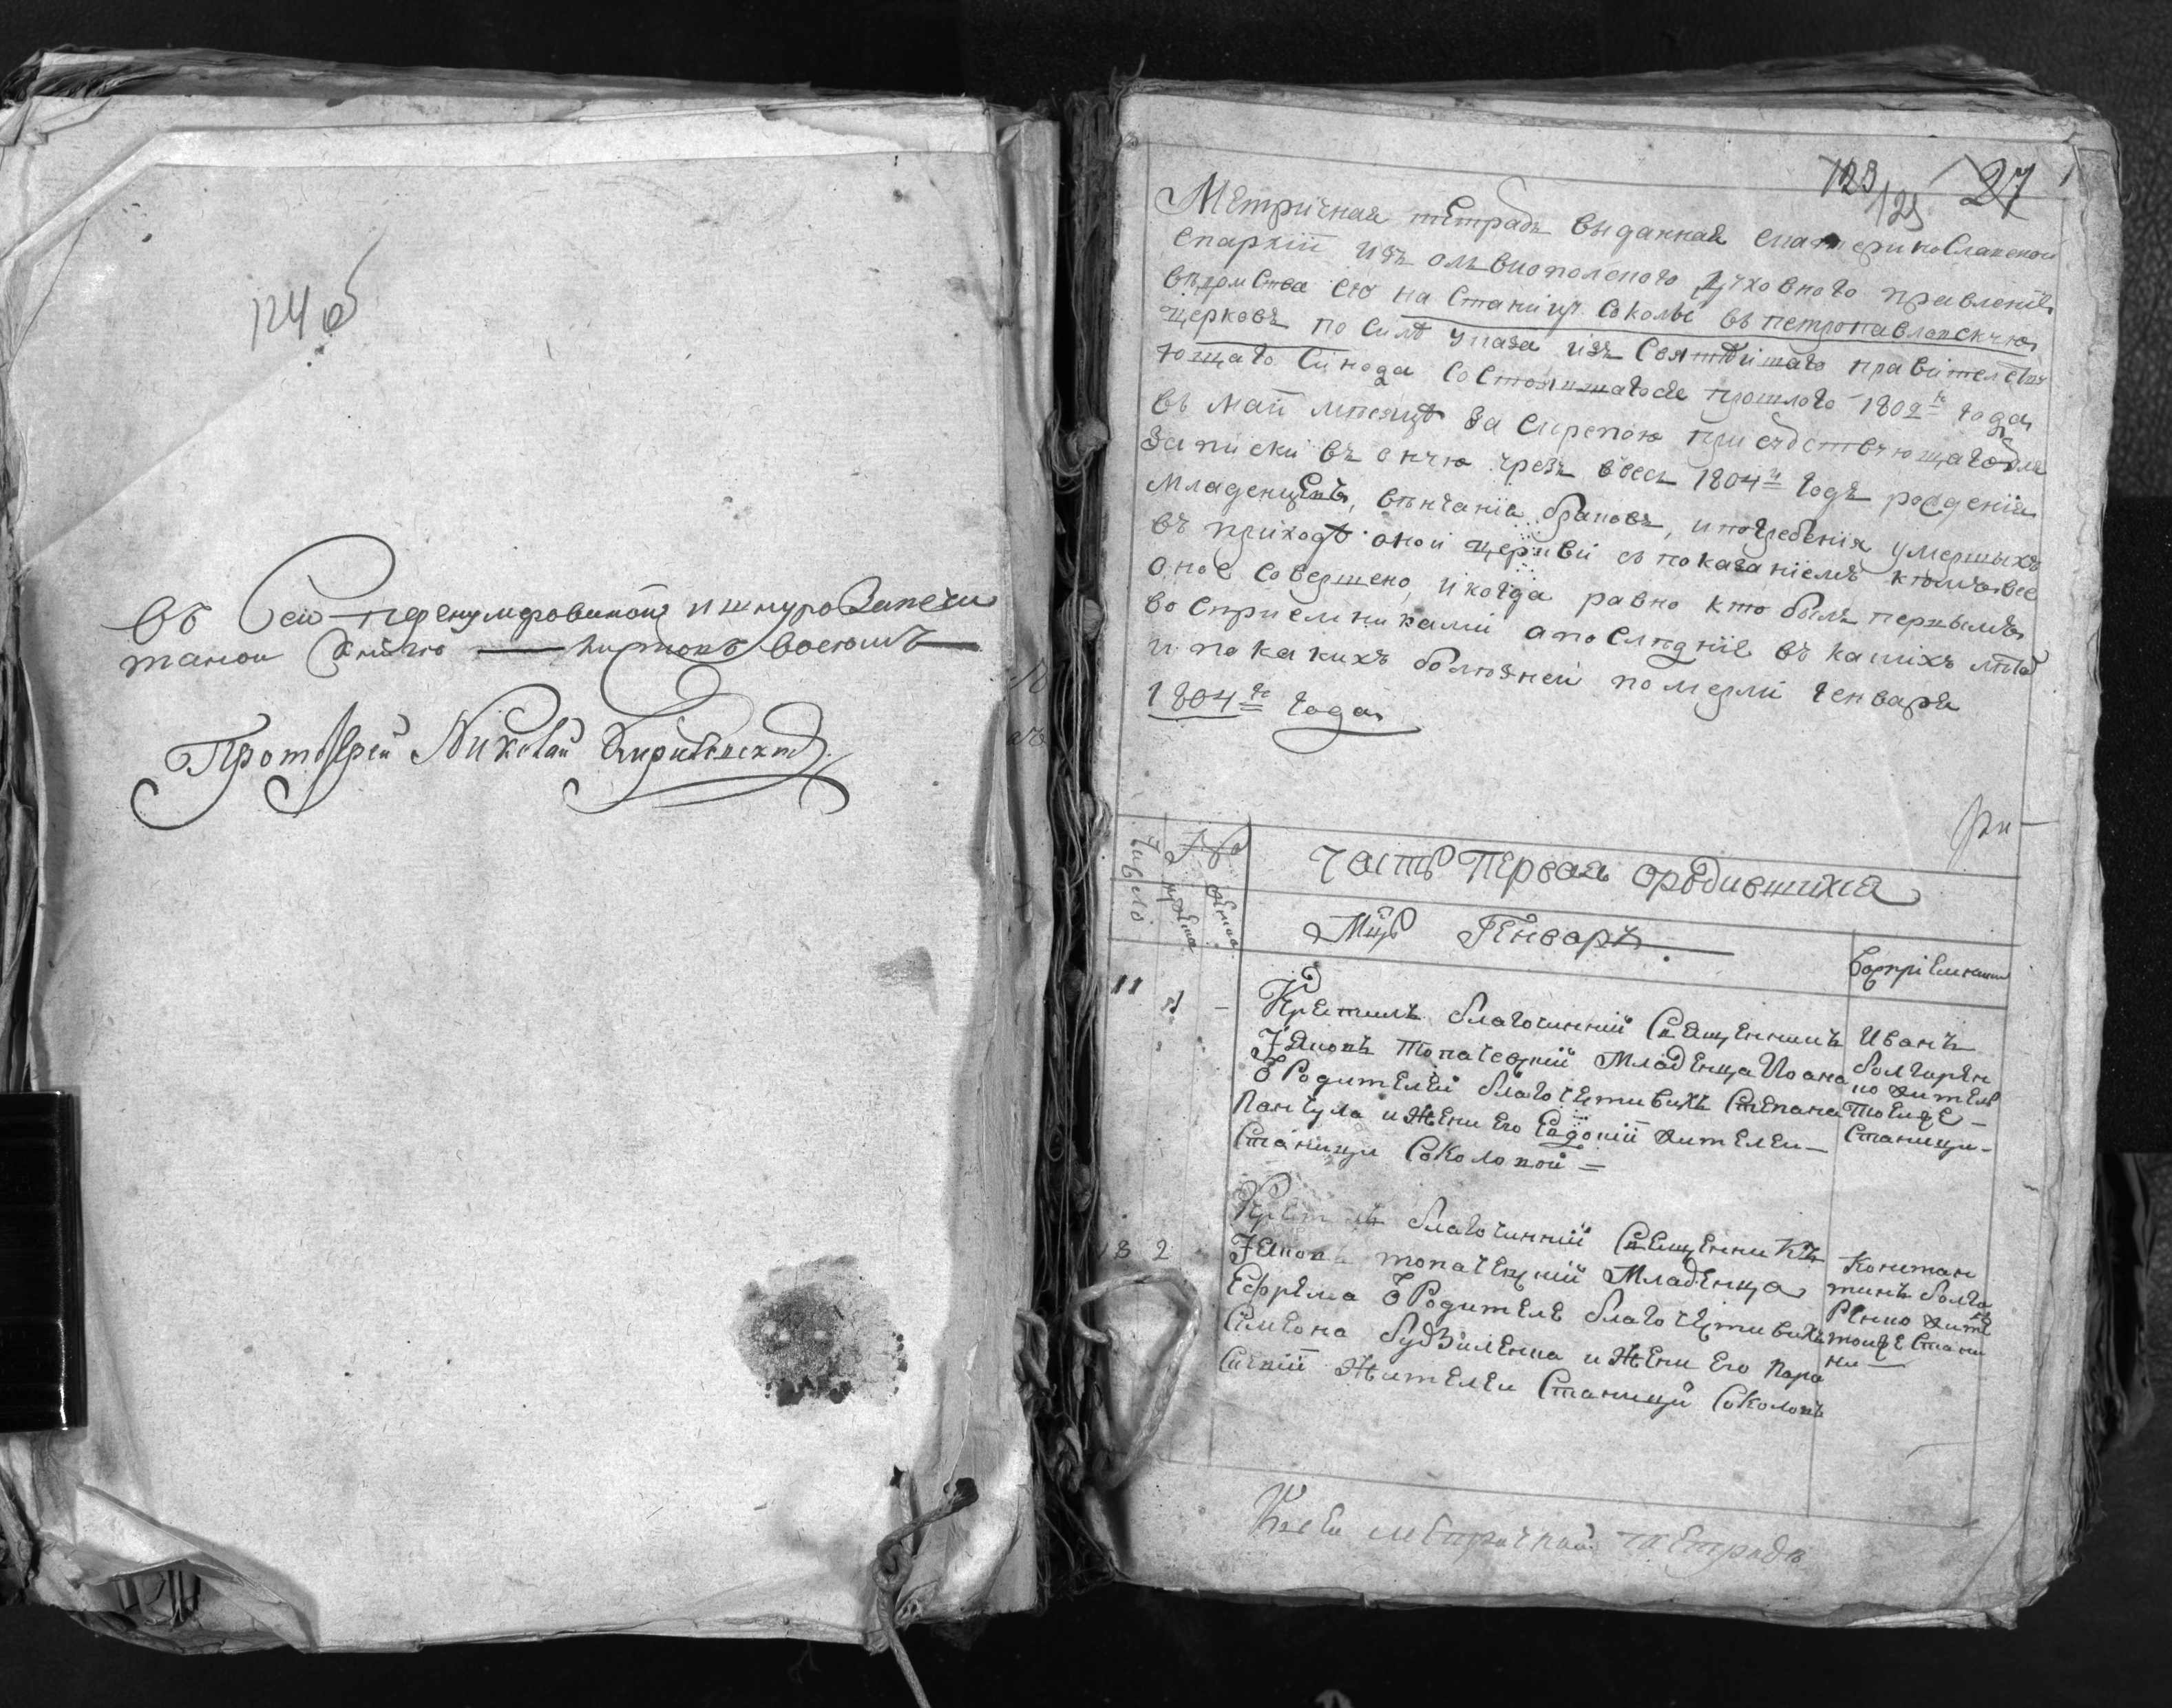 124 об
Въ сей перенумерованой и шнурозапеча
танои книгю листовъ восемъ
Протоіерей Николай
123
125
27
1
Метричная тетрадь выданная Екатеринославской
Епархіи изъ олвиополского духовного правленія
вѣдомства его на станицу Соколы въ петропавловскую
церковь по силѣ указа изъ Святѣйшаго правителству
ющаго Синода состоявшагося прошлого 1802го года
въ маи мѣсяцѣ за скрепою присудствующаго для
записки въ оную чрезъ ввесь 1804й годъ рожденія
младенцевъ, вѣнчанія браковъ, и погребенія умершыхъ
въ приходѣ оной церкви съ показаніемъ кѣмъ все
оное совершено, и когда равно кто былъ первымъ
воспріемниками а послѣдніе въ какихъ лѣтах
и по какихъ болѣзней померли генваря
1804го года
Число
мужеска
женска
Часть Первая о родившихся
Мцъ Генварь
Воспріемники
11
1
-
Крестилъ благочинній Священникъ
Іяковъ Топачевскій Младенца Иоана
Ѿ Родителей благочестивихъ Стефана
Панчула и Жени его Евдокіи жителеи
станици Соколовой
Иванъ
болгарен
ко житель
тоеиже
станици
13
2
Крестилъ благочинній Священникъ
Іяковъ топачевскій Младенца
Ефрема Ѿ Родителе благочестивихъ
Симеона будзиленка и Жени Его Пара
скевіи Жителеи Станици Соколовъ
Констан
тинъ болга
ренко жите
тоиже стани
ци
Къ сеи метричнои тетради